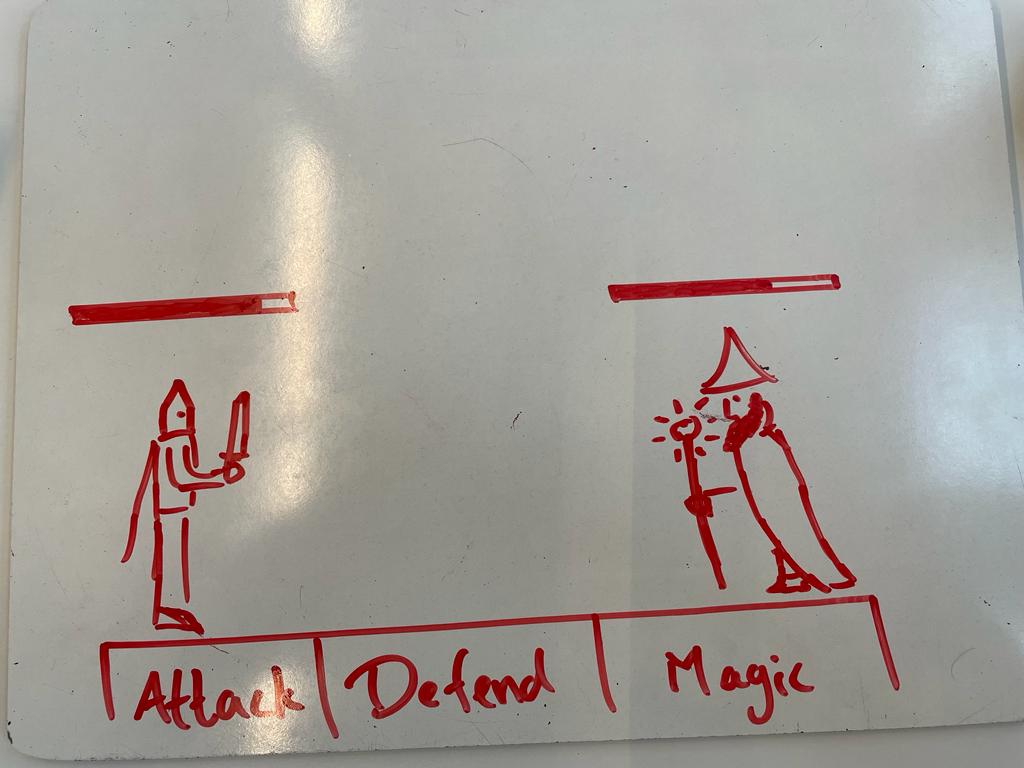 Attack Defend Magic